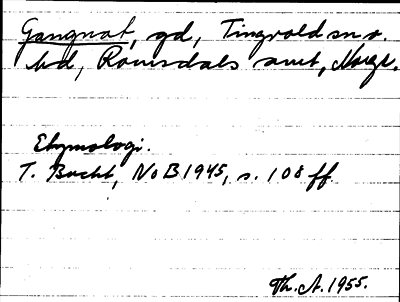 Gangnat, gd, Tingvold sn o.
hd, Romsdals amt, Norge.
Etymologi.
T. Bucht, NoB 1945, s. 108 ff.
Th. A. 1955.